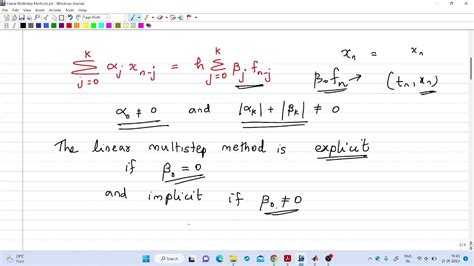 Linear Multistep Methods.jnt - Windows Journal
File Edit View Insert Actions Tools Help
k
∑ αⱼ xₙ₋ⱼ = h ∑ βⱼ fₙ₋ⱼ
j=0 j=0
xₙ = xₙ
β₀fₙ → (tₙ, xₙ)
α₀ ≠ 0 and |αₖ| + |βₖ| ≠ 0
The linear multistep method is explicit
if β₀ = 0
and implicit if β₀ ≠ 0